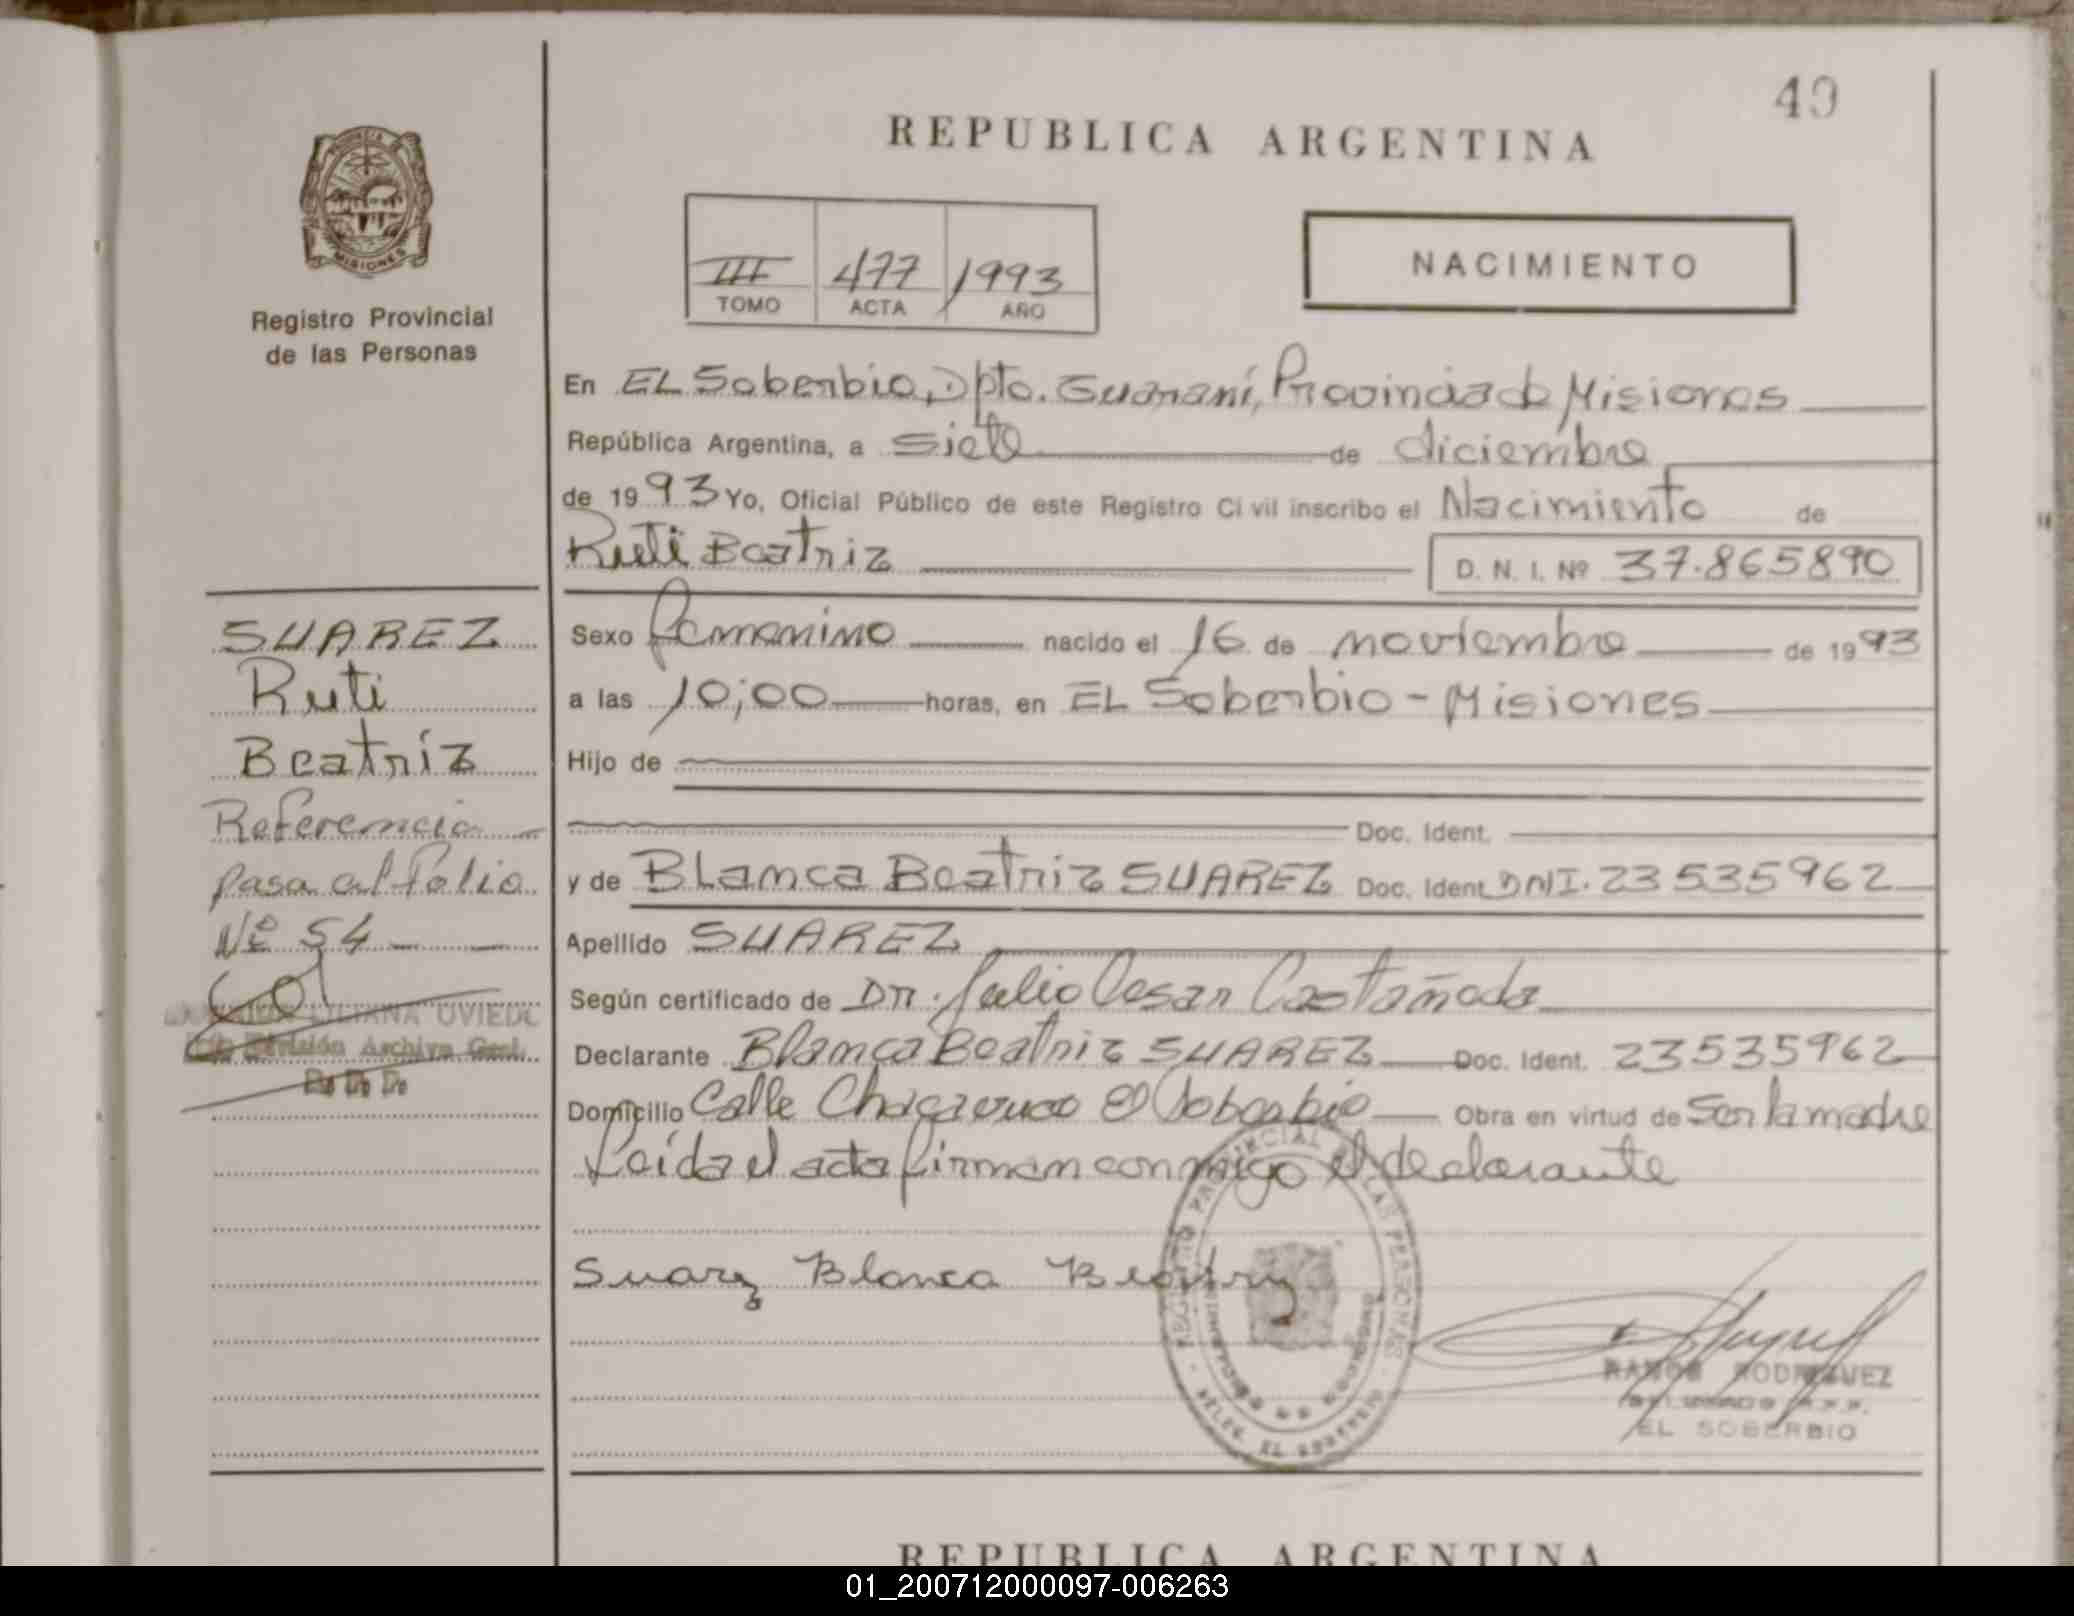 49
REPUBLICA ARGENTINA
PROVINCIA DE
MISIONES
Registro Provincial
de las Personas
III 477 1993
TOMO ACTA AÑO
NACIMIENTO
En EL Soberbio, Dpto. Guaraní, Provincia de Misiones
República Argentina, a siete de diciembre
de 1993 Yo, Oficial Público de este Registro Civil inscribo el Nacimiento de
Ruti Beatriz D. N. I. Nº 37.865890
Sexo femenino nacido el 16 de noviembre de 1993
a las 10;00 horas, en EL Soberbio - Misiones
Hijo de
Doc. Ident.
y de Blanca Beatriz SUAREZ Doc. Ident. DNI. 23535962
Apellido SUAREZ
Según certificado de Dr. Julio Cesar Castañeda
Declarante Blanca Beatriz SUAREZ Doc. Ident. 23535962
Domicilio Calle El Soberbio Obra en virtud de Ser la madre
Leída el acta firman conmigo el declarante
Suarez Blanca Beatriz
SUAREZ
Ruti
Beatríz
Referencia
pasa al folio
Nº 54
LILIANA OVIEDO
División Archivo Gral.
REGISTRO PROVINCIAL DE LAS PERSONAS
EL SOBERBIO
RAMON RODRIGUEZ
EL SOBERBIO
REPUBLICA ARGENTINA
01_200712000097-006263